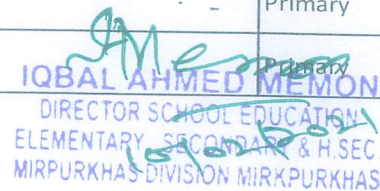 Primary
Primary
IQBAL AHMED MEMON
DIRECTOR SCHOOL EDUCATION
ELEMENTARY, SECONDARY & H.SEC
10/02/2021
MIRPURKHAS DIVISION MIRKPURKHAS